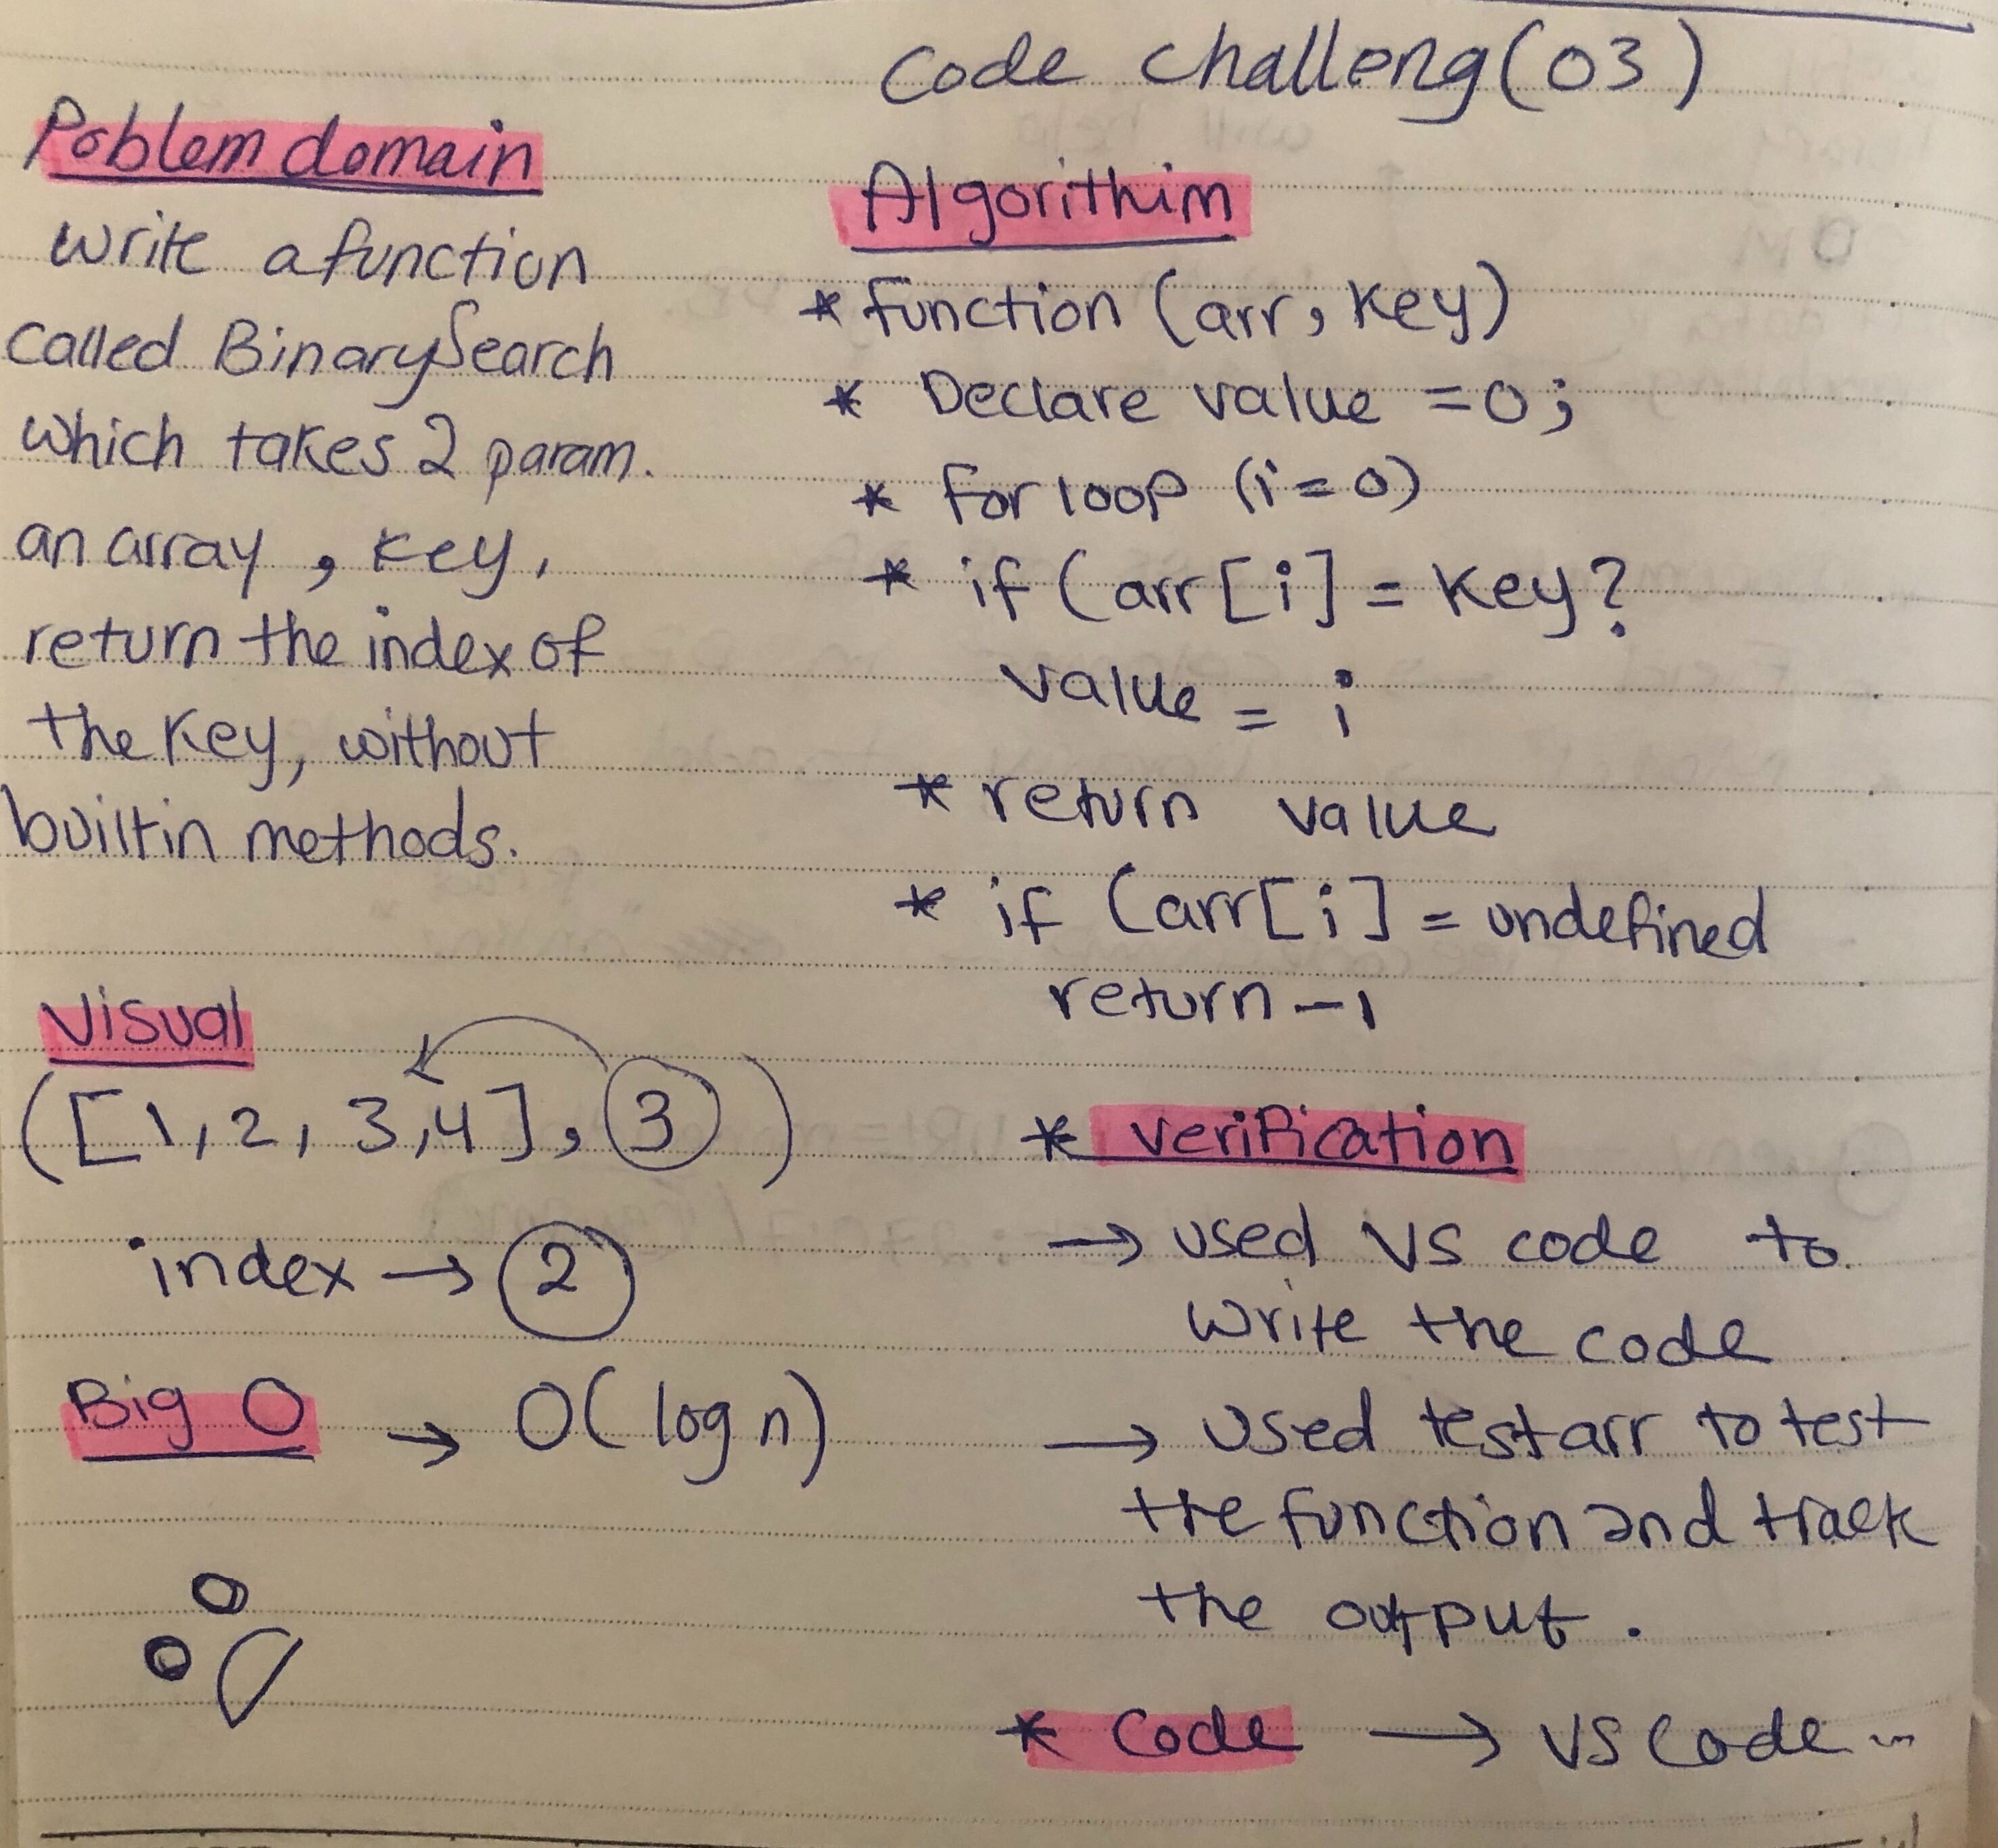 Code challeng(03)
Problem domain
write a function
called BinarySearch
which takes 2 param.
an array, key,
return the index of
the key, without
builtin methods.
Visual
([1, 2, 3, 4], 3)
index → 2
Big O → O(log n)
Algorithim
* function (arr, key)
* Declare value = 0;
* for loop (i = 0)
* if (arr[i] = key?
value = i
* return value
* if (arr[i] = undefined
return -1
* verification
→ used VS code to
write the code
→ used test arr to test
the function and track
the output.
* Code → VS Code ...